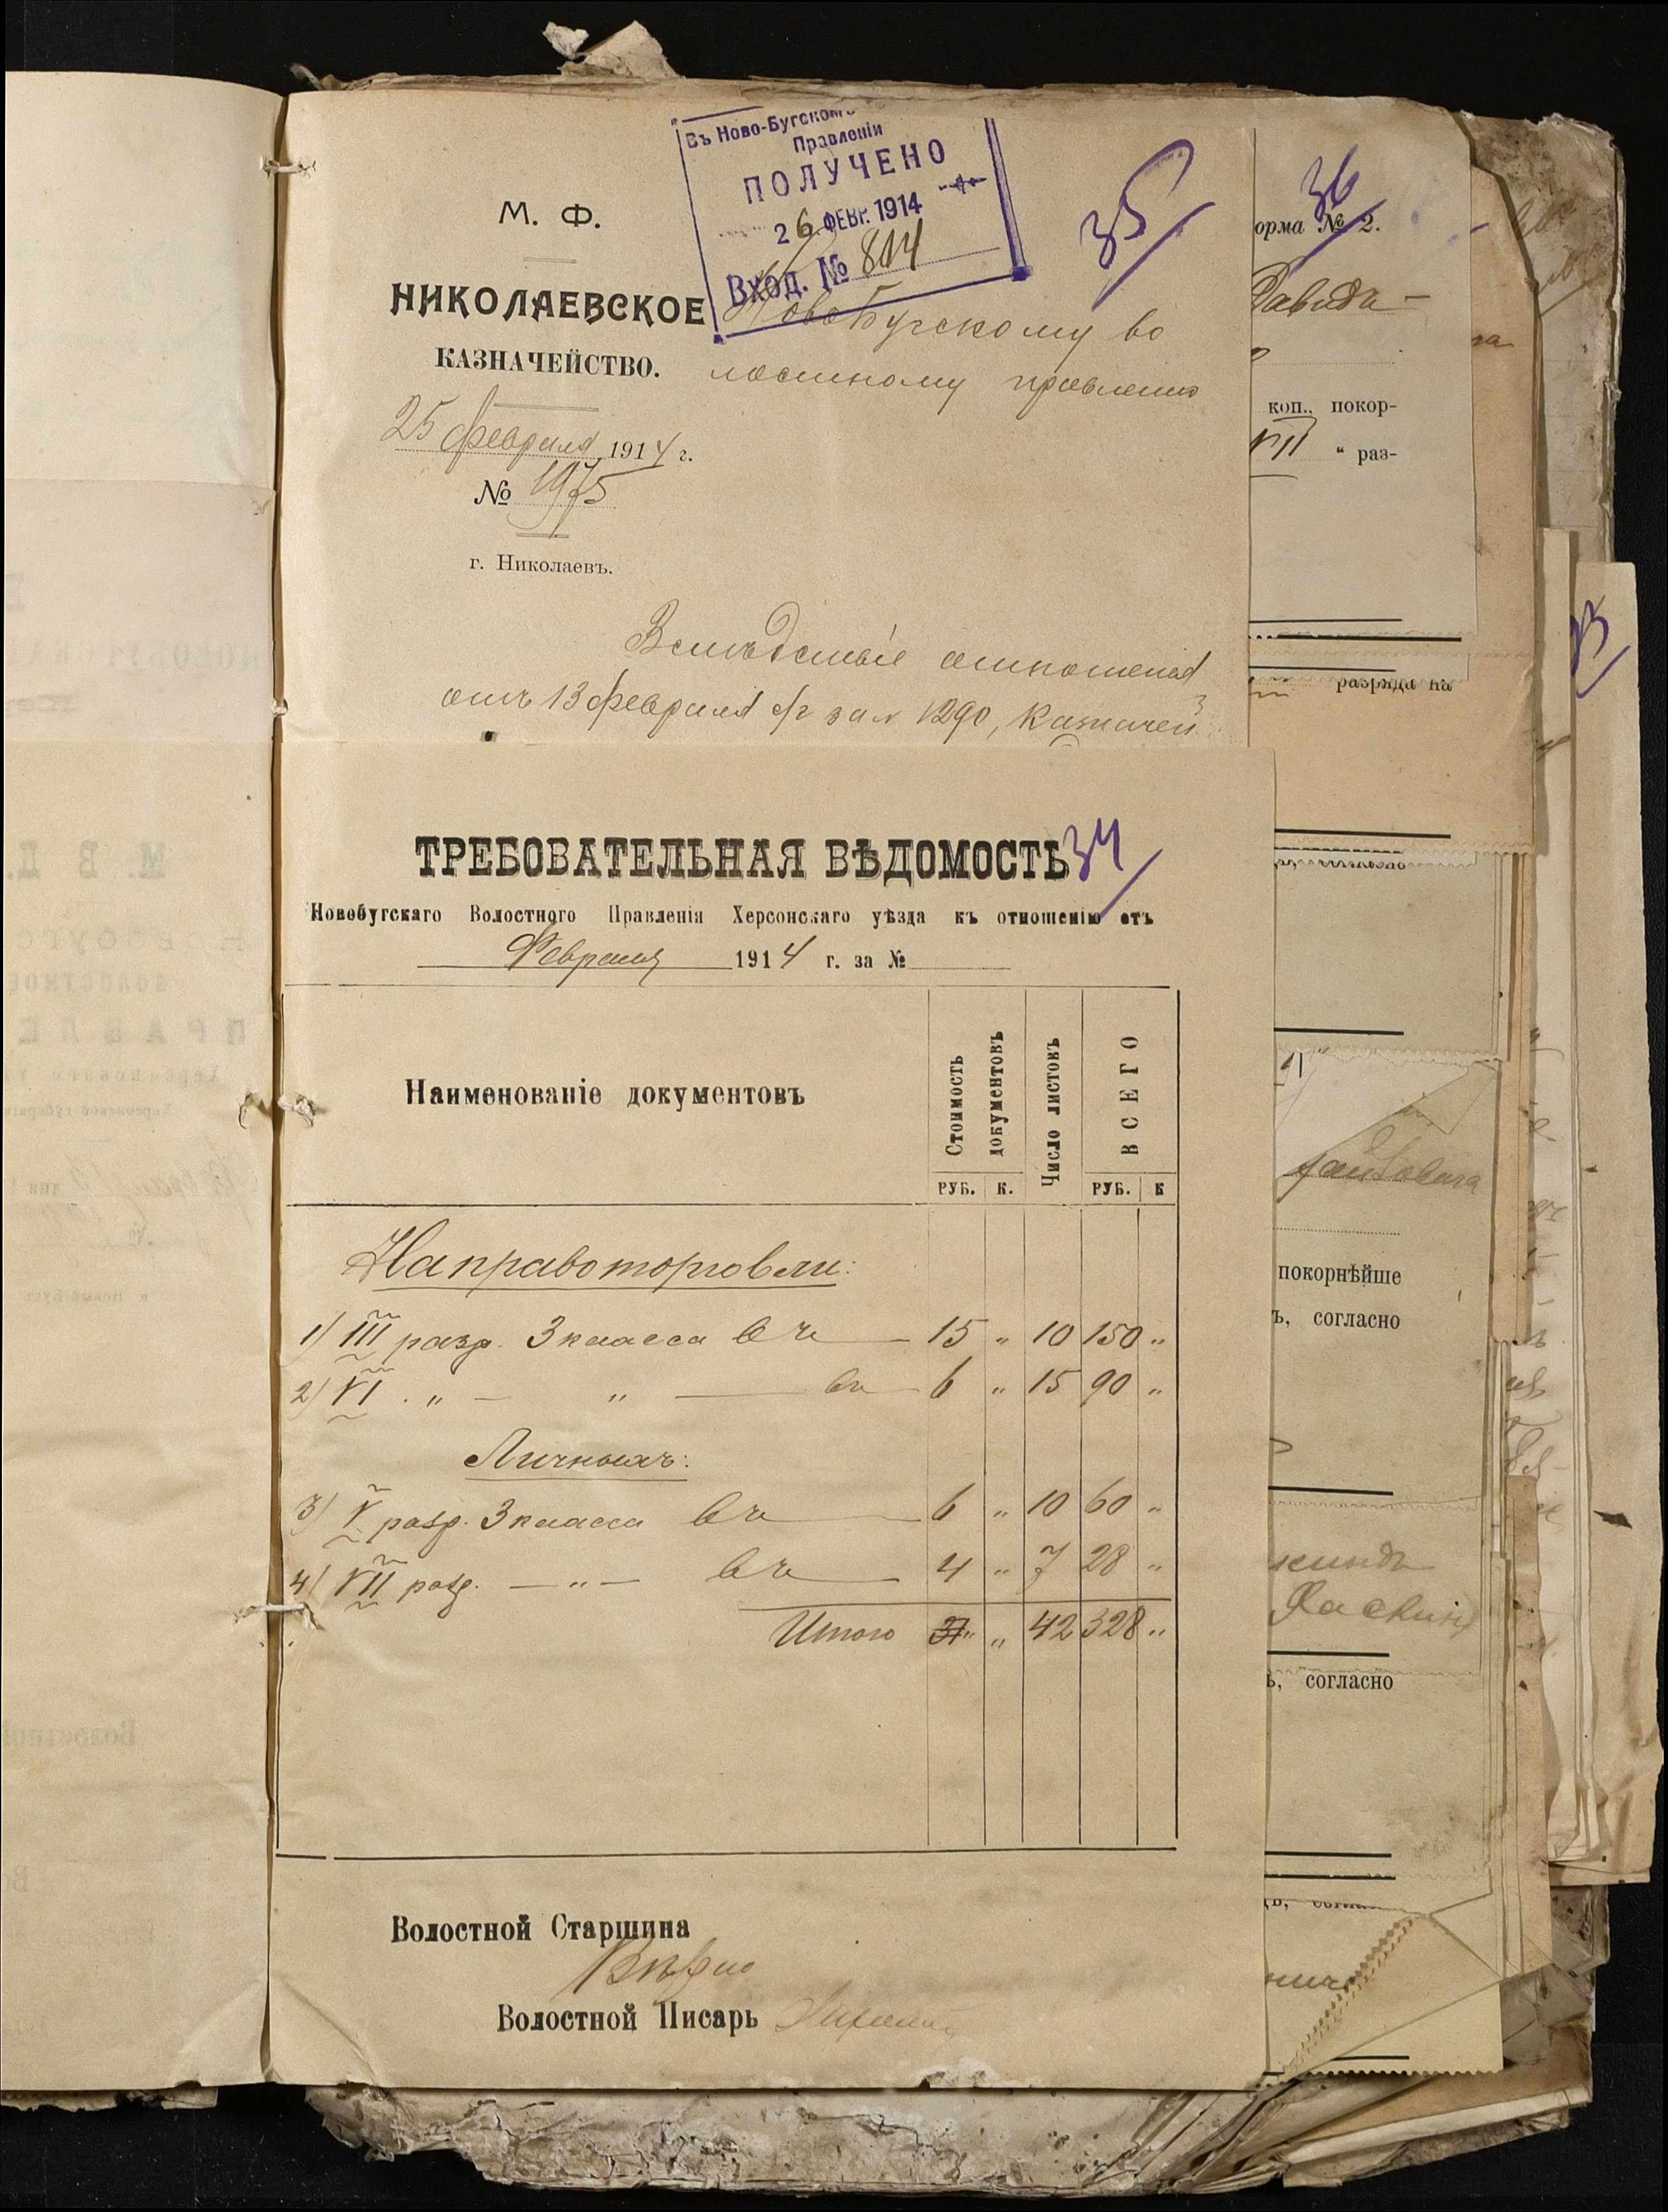 Въ Ново-Бугскомъ
Правленіи
ПОЛУЧЕНО
26 ФЕВР. 1914
Вход. № 814
35
М. Ф.
НИКОЛАЕВСКОЕ
КАЗНАЧЕЙСТВО.
25 февраля 1914 г.
№ 1975
г. Николаевъ.
Новобугскому во
лостному правлению
Вслѣдствіе отношенія
отъ 13 февраля с/г за № 1290, Казначей
34
ТРЕБОВАТЕЛЬНАЯ ВѢДОМОСТЬ
Новобугскаго Волостного Правленія Херсонскаго уѣзда къ отношенію отъ
Февраля 1914 г. за №
Наименованіе документовъ
Стоимость документовъ
Число листовъ
ВСЕГО
РУБ. К. РУБ. К
На право торговли:
1) III разр. 3 класса въ 15 „ 10 150 „
2) VI „ — „ — въ 6 „ 15 90 „
Личныхъ:
3) V разр. 3 класса въ 6 „ 10 60 „
4) VII разр. — „ — въ 4 „ 7 28 „
Итого 31 „ 42 328 „
Волостной Старшина
Волостной Писарь
36
орма № 2.
Давидъ —
коп., покор-
VII “ раз-
разряда на
покорнѣйше
ъ, согласно
киндъ
Хаскинд
ь, согласно
33